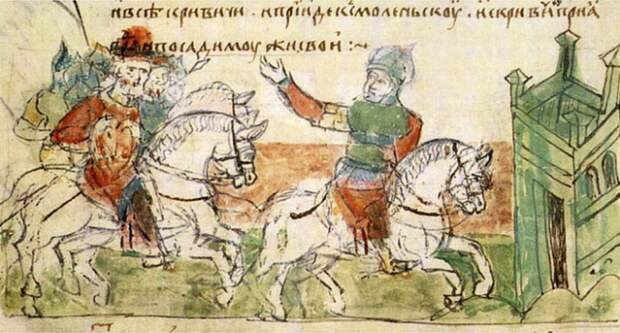 и всѣ кривичи . и прїиде к смоленьскоу . и с кривичи прїа
и посади моужи свои :~